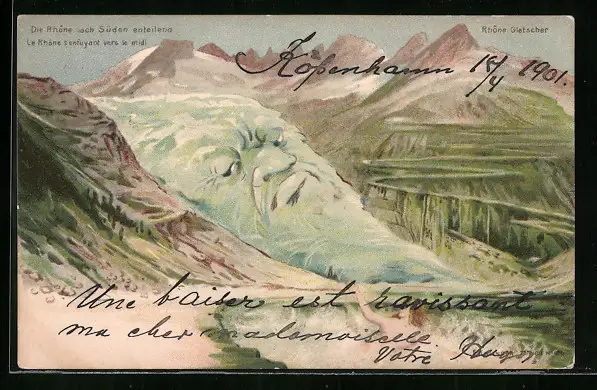 Die Rhône nach Süden enteilend
Le Rhône s'enfuyant vers le midi
Rhône Gletscher
Köbenhamn 18/4 1901.
Une baiser est ravissant
ma cher mademoiselle
Votre